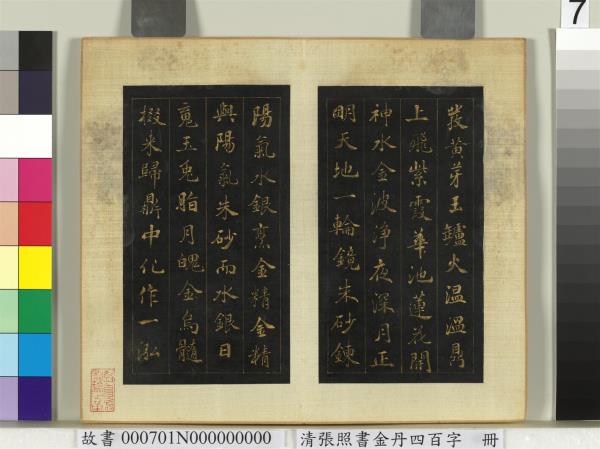 發黃芽玉鑪火溫溫鼎
上飛紫霞華池蓮花開
神水金波淨夜深月正
明天地一輪鏡朱砂鍊
陽氣水銀烹金精金精
與陽氣朱砂而水銀日
魂玉兔脂月魄金烏髓
掇來歸鼎中化作一泓
7
故書 000701N000000000 清張照書金丹四百字 冊